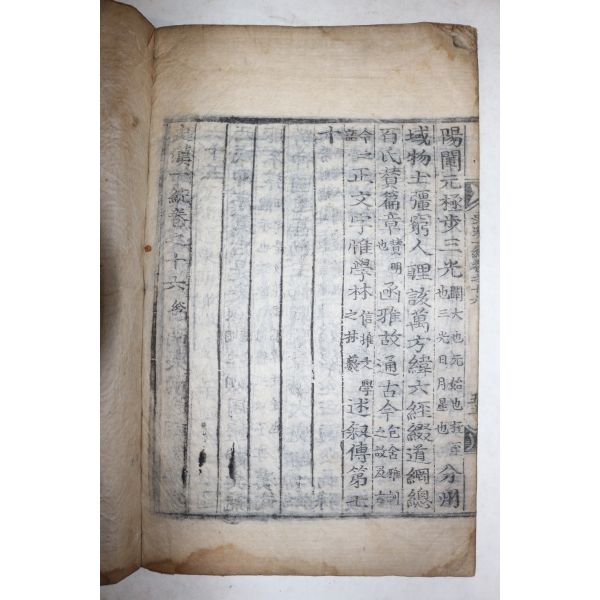 陽闡元極步三光闡大也元始也極至也三光日月星也分州
域物土疆窮人理該萬方緯六經綴道綱總
百氏贊篇章贊明也函雅故通古今包含雅訓之故及古
今之語正文字惟學林信惟文學之林藪述叙傳第七
十
史漢一統卷之十六終